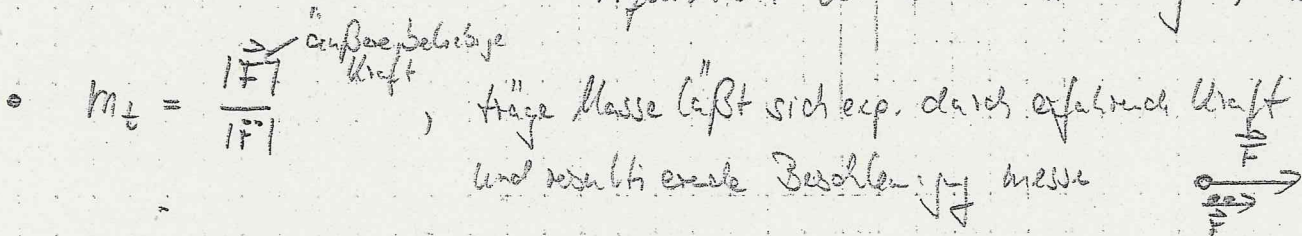 äußere, beliebige
Kraft
• m_t = |F⃗| / |r̈⃗| , träge Masse läßt sich exp. durch erfahrende Kraft
und resultierende Beschleunigung messen
F⃗
r̈⃗